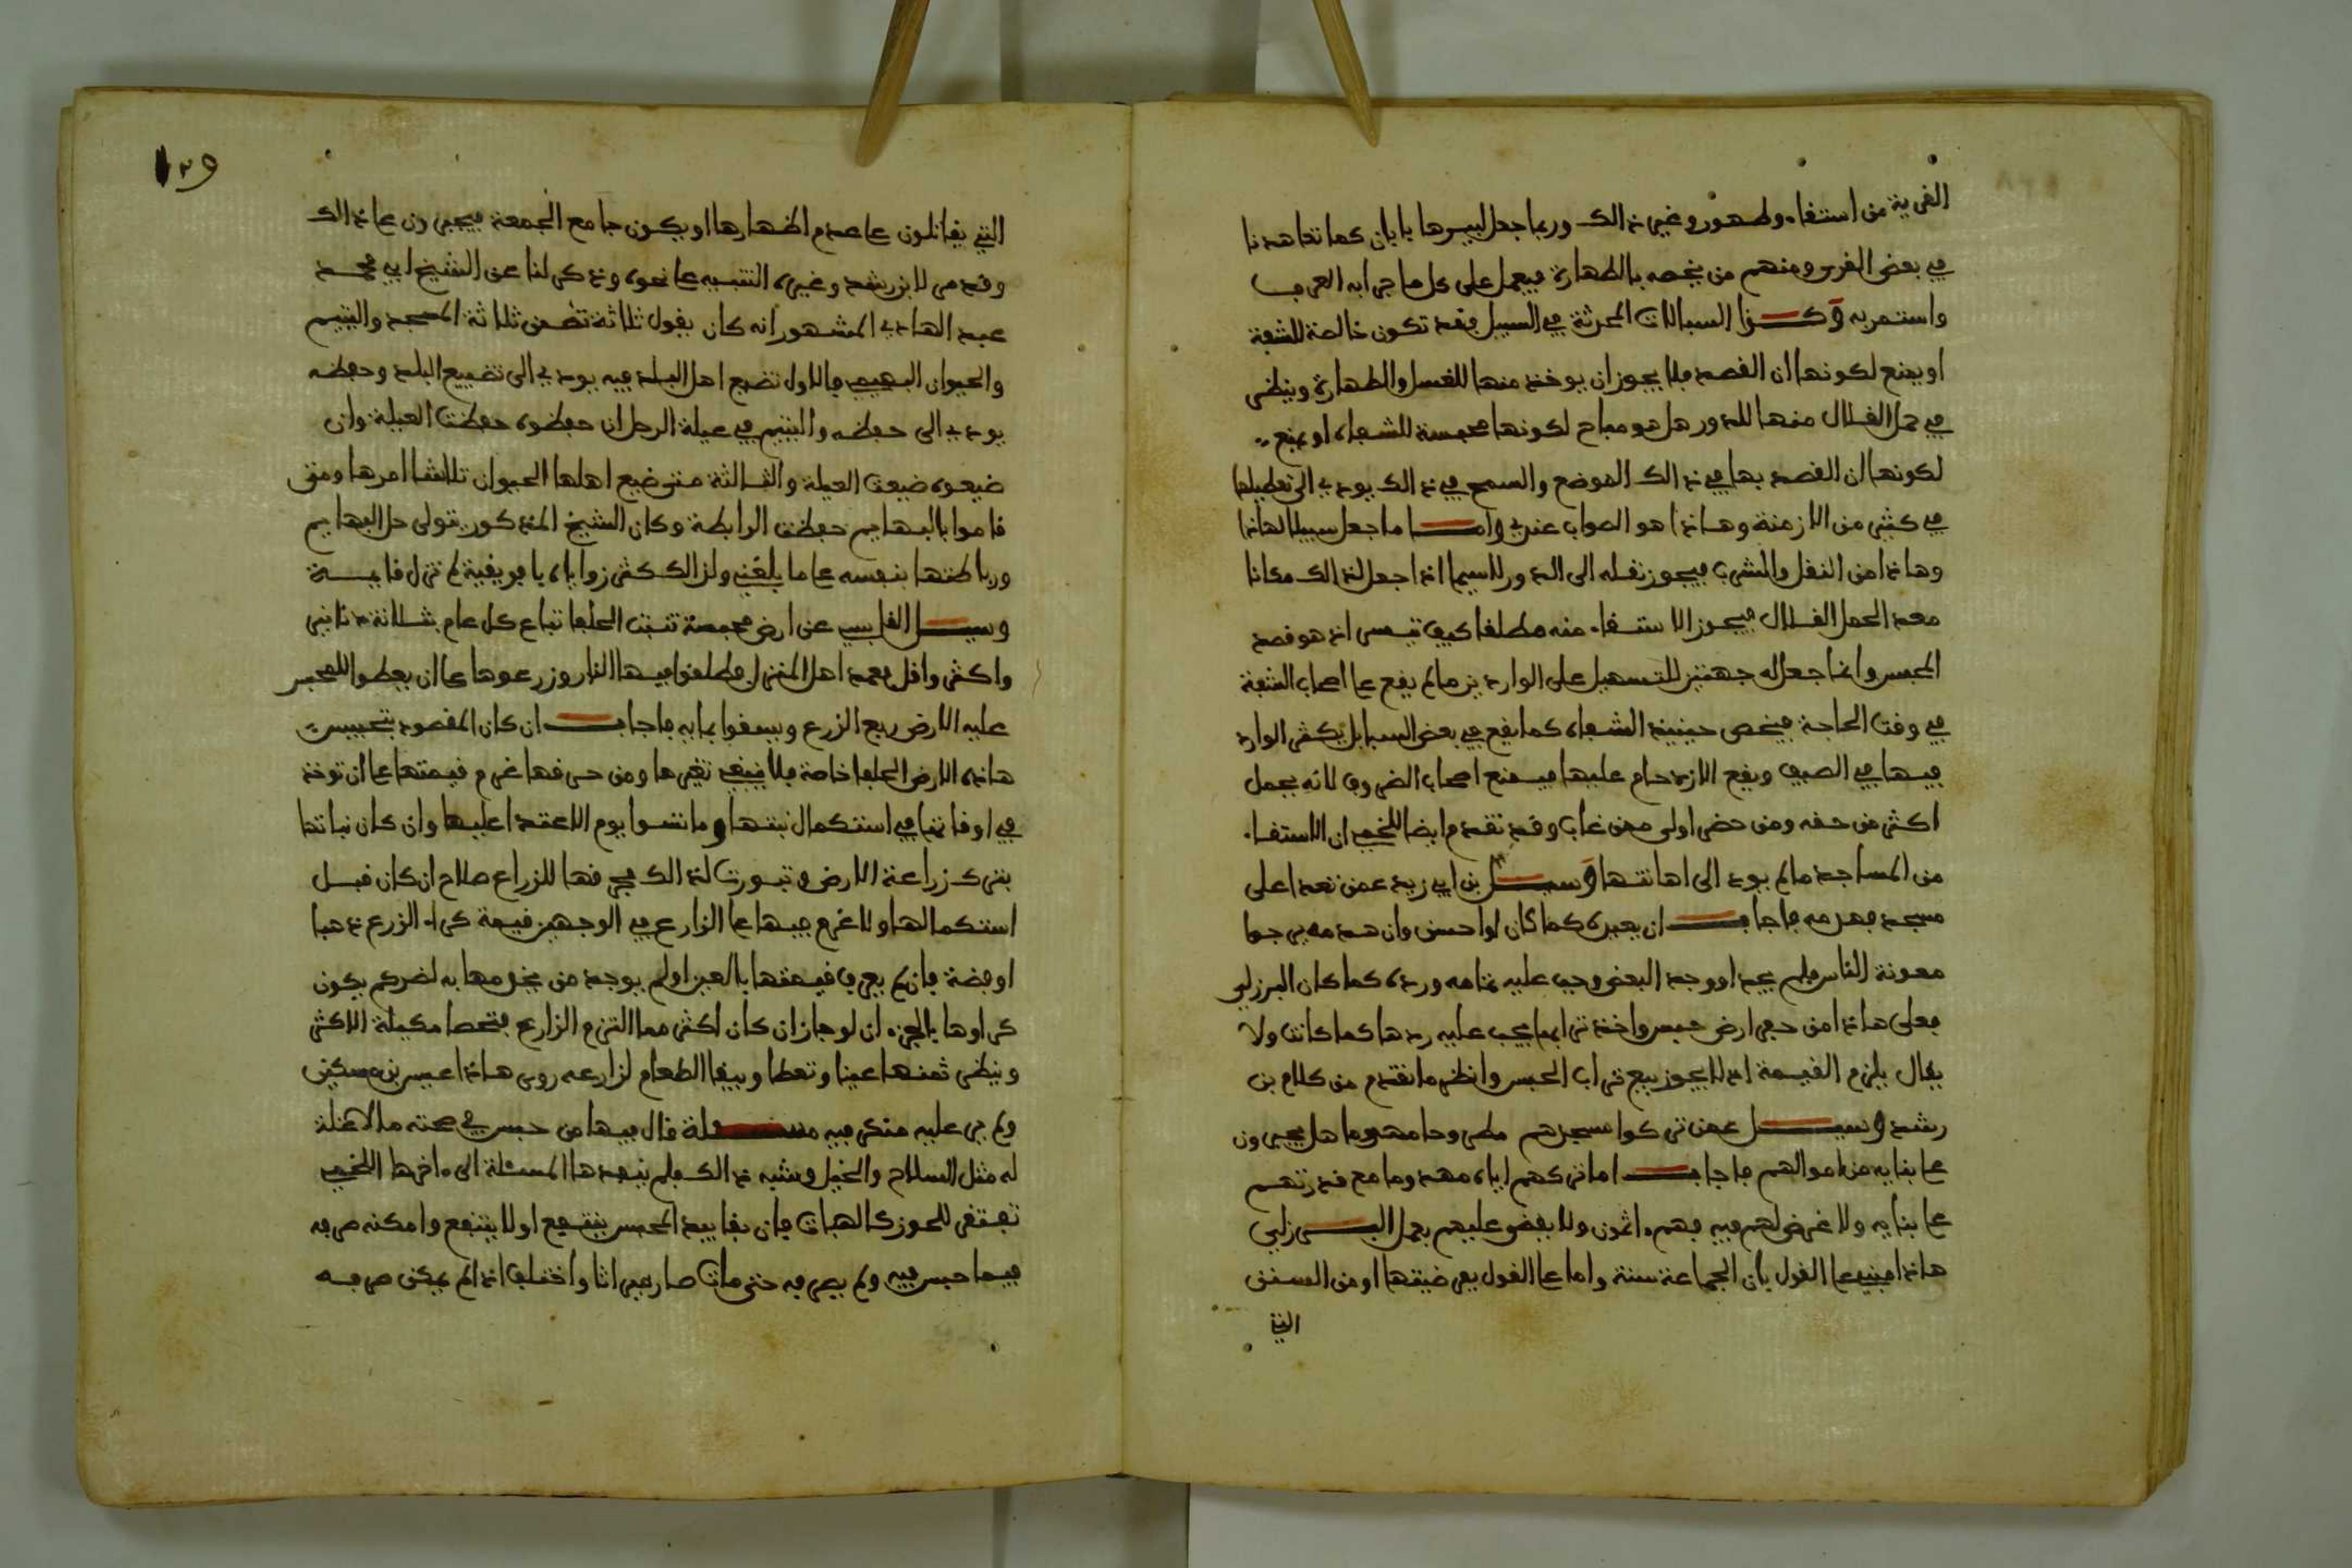 القرية من استقاء وطهور وغير ذالك وربما جعل لبيرها يا يان كما تعاهدنا
في بعض القرى ومنهم من يخصه بالطهارة فيعمل على كل ما جرا به العرف
واستمر به وكذا السبالات المحدثة في السبيل فقد تكون خالصة للشفة
او يمنع لكونها ان القصد فلا يجوز ان يوخذ منها للغسل والطهارة وينظر
في حمل القلال منها للدور هل هو مباح لكونها محبسة للشفاه او يمنع
لكونها ان القصد بها في ذالك الموضع والسمح في ذالك يودي الى تعطيلها
في كثير من الازمنة وهاذا هو الصواب عندي واما ما جعل سبيلا لهاذا
وهاذا من النقل والشرب فيجوز نقله الى الدور لاسيما اذا جعل لذالك مكانا
معد الحمل القلال فيجوز الاستقاء منه مطلقا كيف تيسر اذ هو قصد
المحبس وانما جعل له جهتين للتسهيل على الواردين ما لم يقع على اصحاب الشفة
في وقت الحاجة فيخص حينيذ الشفاه كما يقع في بعض السبايل يكثر الوارد
فيها في الصيف ويقع الازدحام عليها فيمنع اصحاب الضروف لانه يحمل
اكثر من حقه ومن حضر اولى ممن غاب وقد تقدم ايضا للخمي ان الاستقاء
من المساجد ما لم يود الى اهانتها وسيل بن ابي زيد عمن تعدا على
مسجد فهدمه فاجاب ان يعيده كما كان او احسن وان هدمه يرجوا
معونة الناس فلم يجد او وجد البعض وجب عليه تمامه ورده كما كان البرزلي
فعلى هاذا من حفر ارض حبس واخذ ترابها يجب عليه ردها كما كانت ولا
يقال يلزم القيمة اذ لا يجوز بيع تراب الحبس وانظر ما تقدم من كلام بن
رشد وسيل عمن تركوا مسجدهم مطروحا مهدوما هل يجبرون
على بنايه من اموالهم فاجاب اما تركهم اياه مهدوما مع قدرتهم
على بنايه ولا غرض لهم فيه فهم ءاثمون ولا يقضى عليهم بعمل البرزلي
هاذا مبني على القول بان الجماعة سنة واما على القول بفرضيتها او من السنن
التي
١٣٩
التي يقاتلون على عدم اظهارها او يكون جامع الجمعة فيجبرون على ذالك
وقد مر لابن رشد وغيره التنبيه على نحوه وذكر لنا عن الشيخ ابي محمد
عبد الهادي المشهور انه كان يقول ثلاثة تضمن ثلاثة المسجد واليتيم
والحيوان البهيمي فالاول تضيع اهل البلد فيه يودي الى تضييع البلد وحفظه
يودي الى حفظه واليتيم في عيلة الرجل ان حفظوه حفظت العيلة وان
ضيعوه ضيعت العيلة والثالثة متى ضيع اهلها الحيوان تلاشا امرها ومتى
قاموا بالبهايم حفظت الرابطة وكان الشيخ المذكور يتولى حل البهايم
ورباطتها بنفسه على ما بلغني ولذالك كثر زواياه بافريقية لم تزل قايمة
وسيل القابسي عن ارض محبسة تنبت الحلفا تباع كل عام بثلاثة دنانير
واكثر واقل فعمد اهل المنزل فطلقوا فيها النار وزرعوها على ان يعطوا للمحبس
عليه الارض ربع الزرع ويبقوا بما به فاجاب ان كان المقصود بتحبيس
هاذه الارض الحلفا خاصة فلا ينبغي تغيرها ومن حرقها غرم قيمتها على ان توخذ
في اوقاتها في استكمال نبتها وما تسوا يوم الاعتدا عليها وان كان نباتها
بترك زراعة الارض وتبورت لذالك فحرقها للزراع صلاح ان كان قبل
استكمالها ولا غرم فيها على الزارع في الوجهين قيمة كراء الزرع ذهبا
او فضة فان لم يعرف قيمتها بالعين او لم يوجد من يحرمها به لضركم يكون
كراوها بالجزء ان لو جاز ان كان اكثر مما التزم الزارع فتحصا مكيلة الاكثر
وينظر ثمنها عينا وتعطا ويبقا الطعام لزارعه روى هاذا عيسى بن مسكين
ولم جر عليه منكر فيه مسئلة قال فيها من حبس في صحته ما لا غلة
له مثل السلاح والخيل وشبه ذالك فلم ينفدها المسئلة الى ءاخرها اللخمي
تفتقر للحوز كالهبات فان بقا بيد المحبس ينتفع او لا ينتفع وامكنه صرفه
فيما حبس فيه ولم يصرفه حتى مات صار ميراثا واختلف اذا لم يمكن صرفه